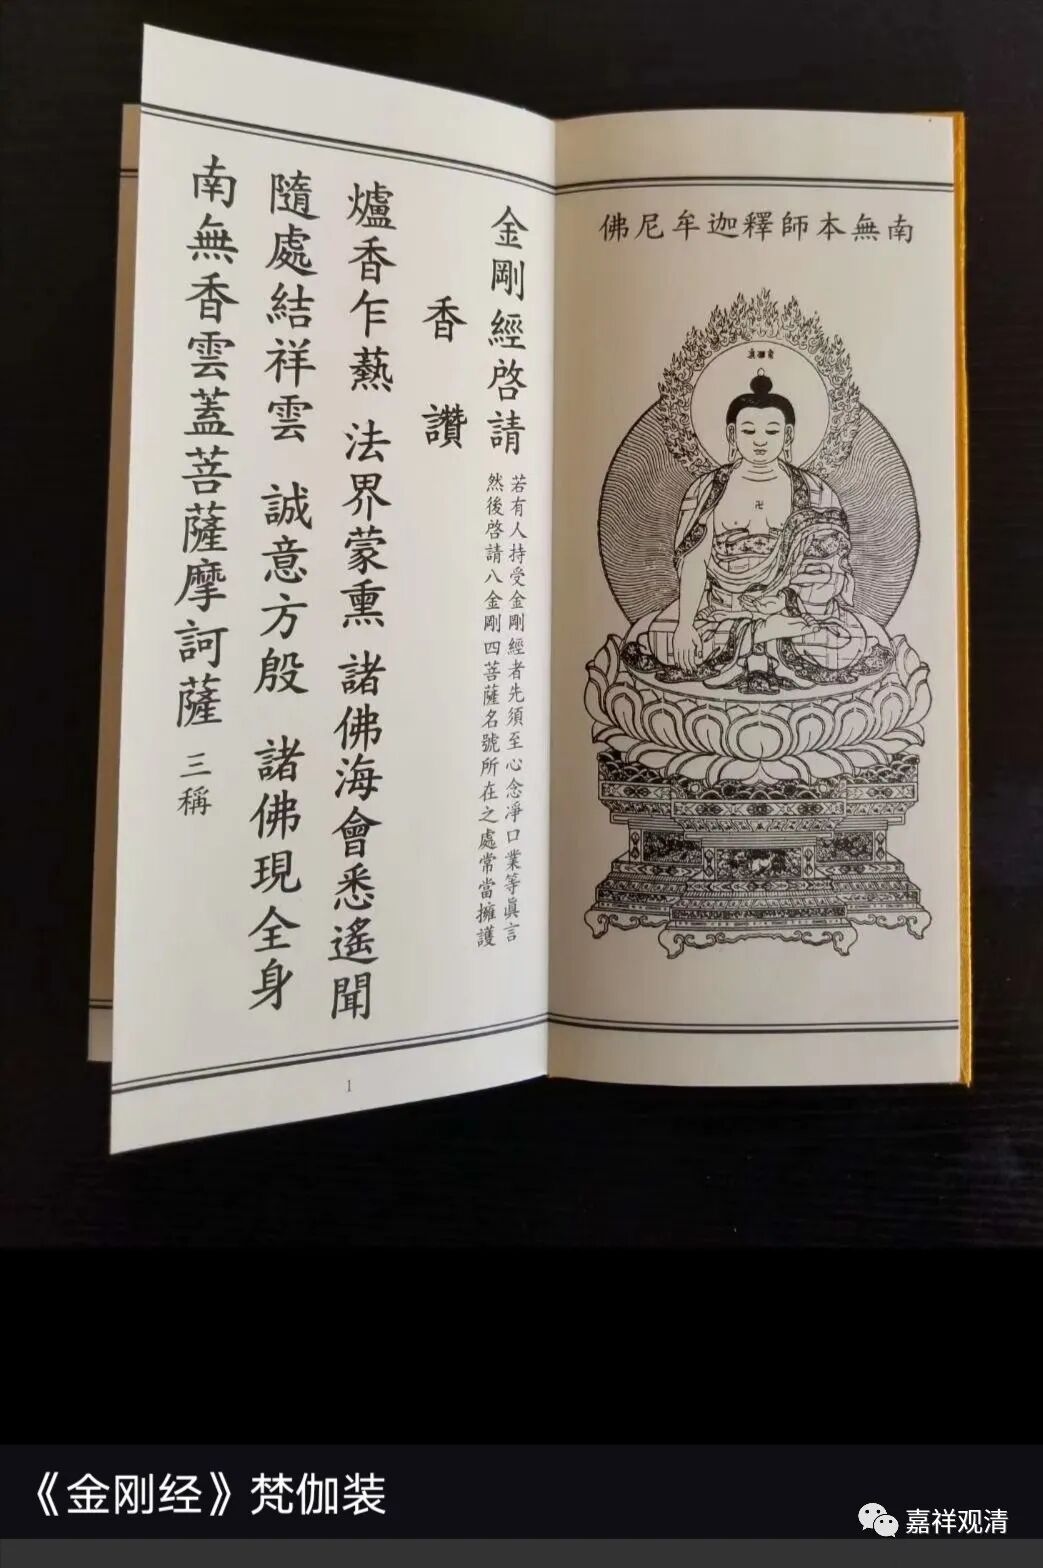 南無本師釋迦牟尼佛
金剛經啓請
若有人持受金剛經者先須至心念淨口業等眞言
然後啓請八金剛四菩薩名號所在之處常當擁護
香讚
爐香乍爇 法界蒙熏 諸佛海會悉遙聞
隨處結祥雲 誠意方殷 諸佛現全身
南無香雲蓋菩薩摩訶薩 三稱
1
《金刚经》梵伽装
嘉祥观清